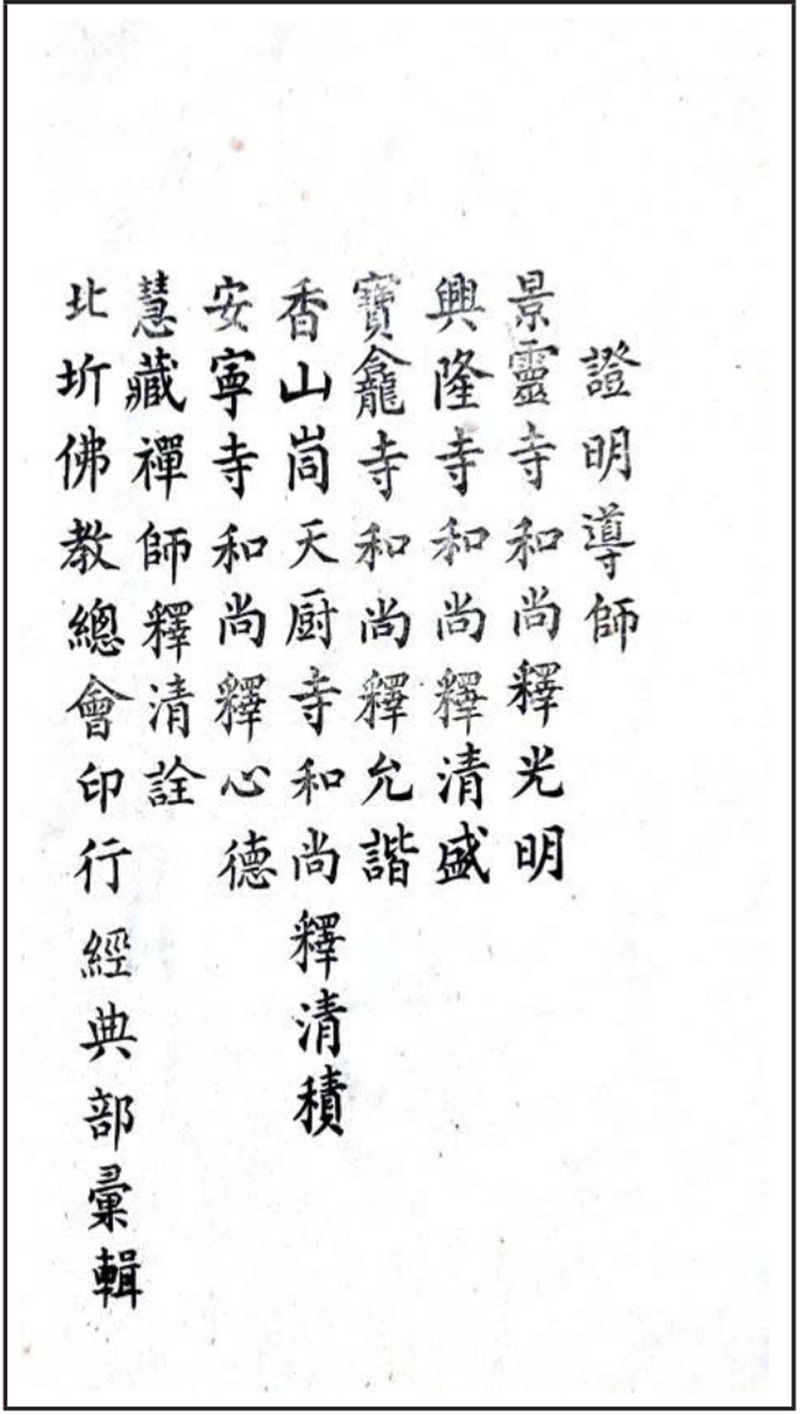 證明導師
景靈寺和尚釋光明
興隆寺和尚釋清盛
寶龕寺和尚釋允諧
香山峝天厨寺和尚釋清積
安寧寺和尚釋心德
慧藏禪師釋清詮
北圻佛教總會印行經典部彙輯